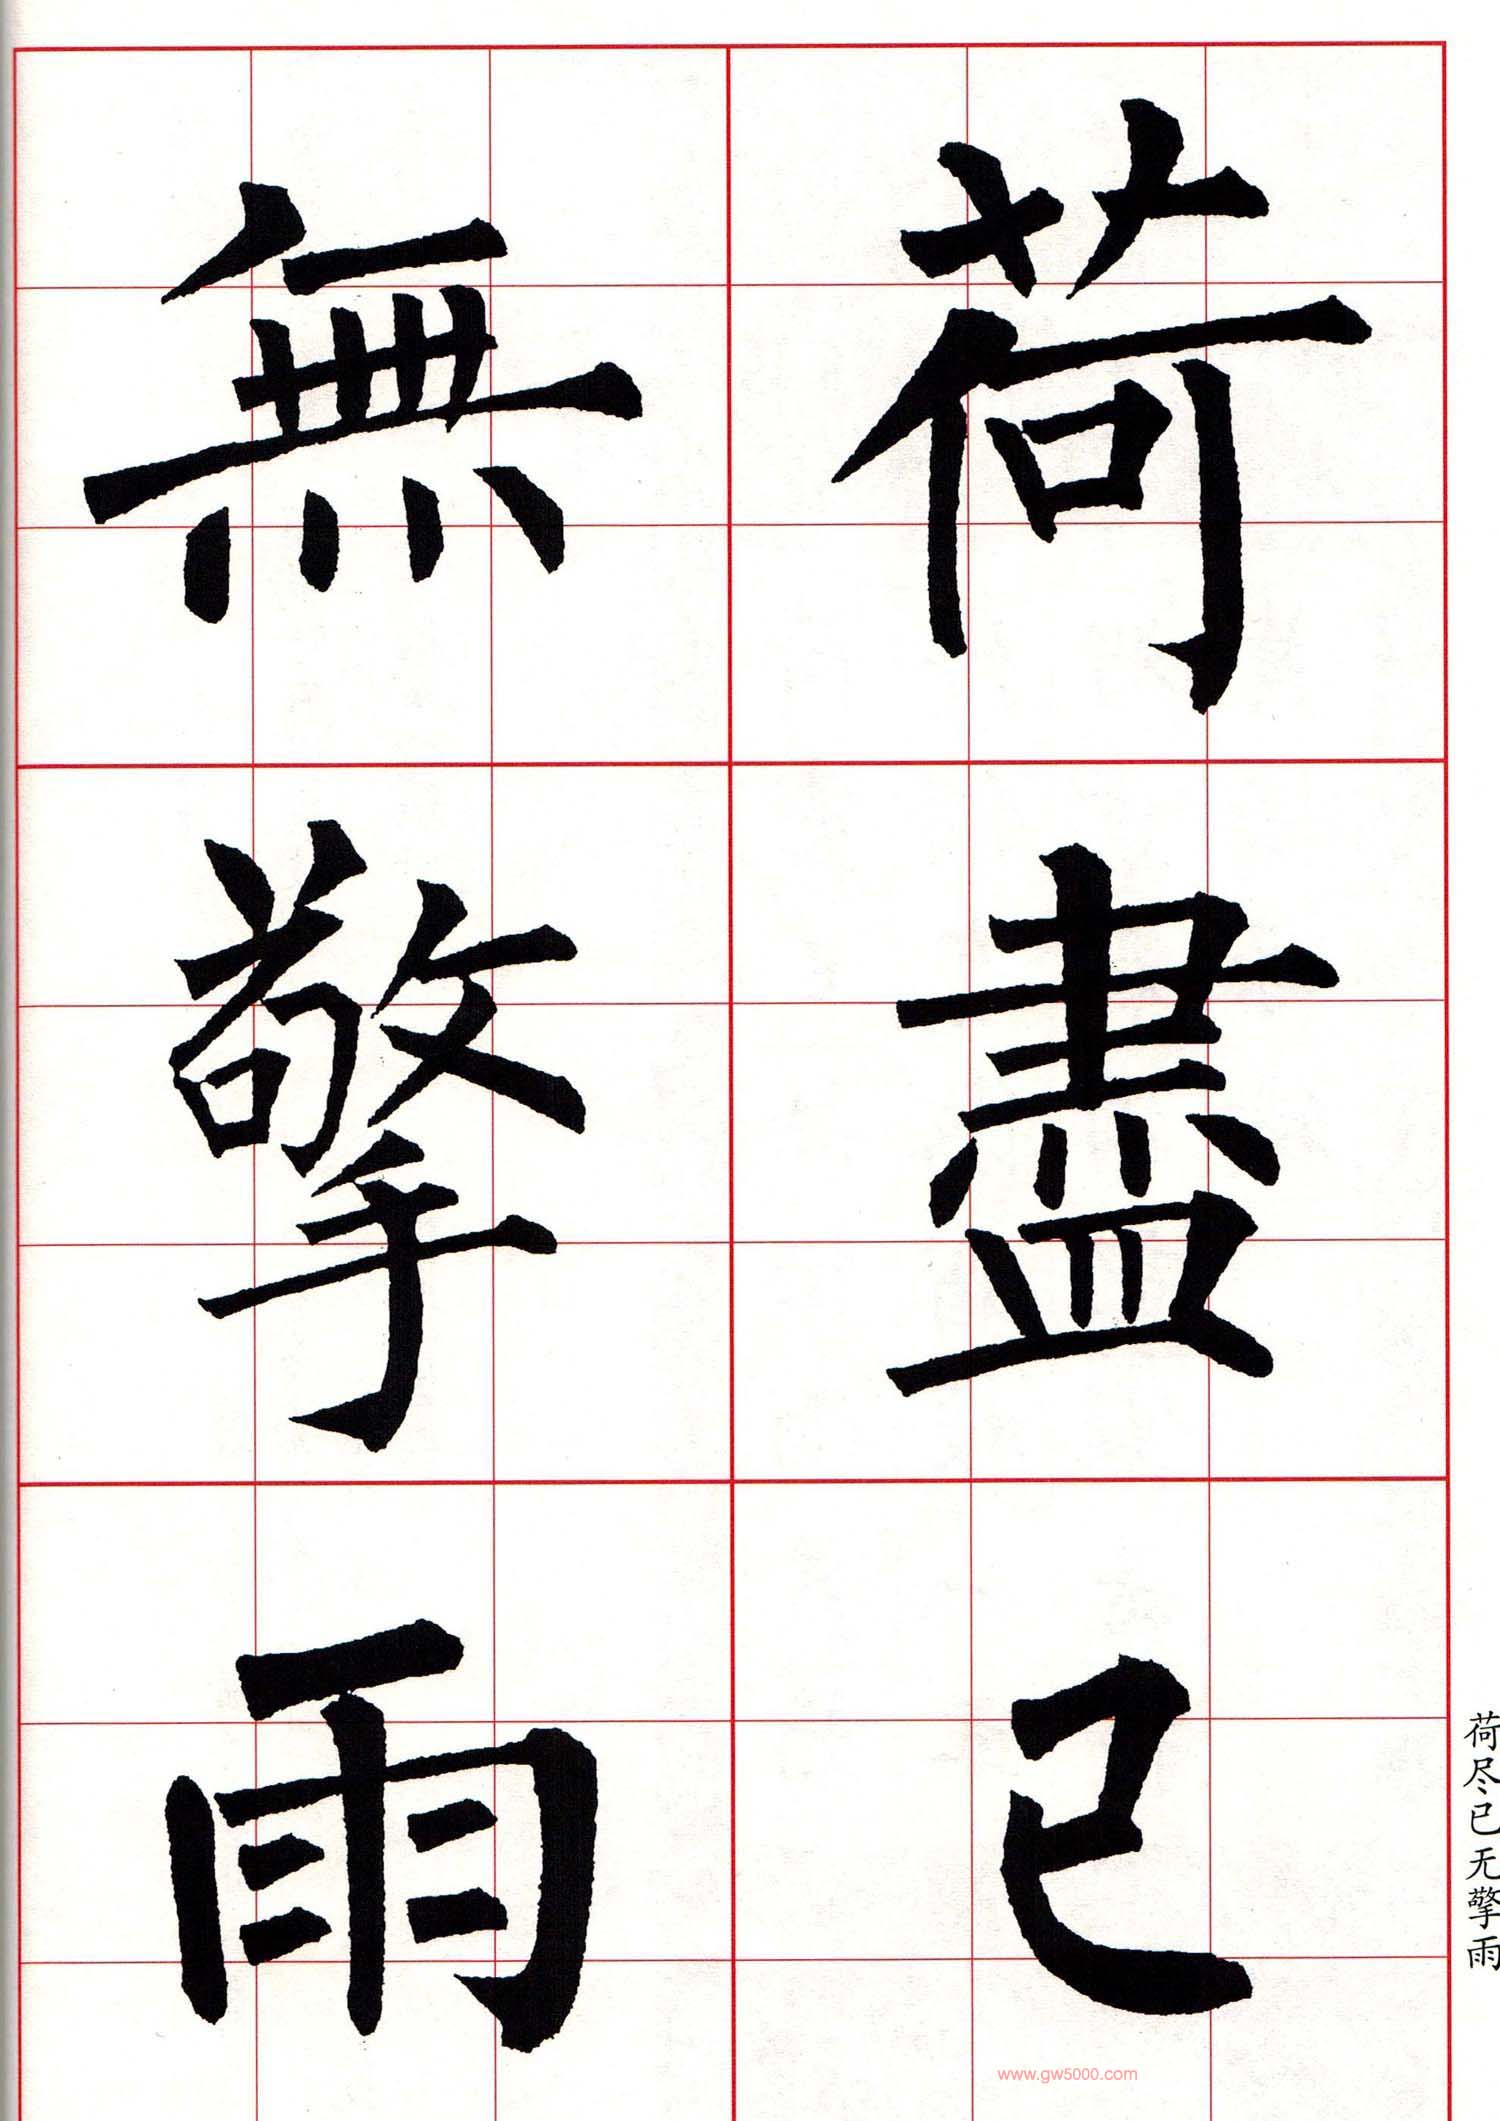 荷盡已
無擎雨
荷尽已无擎雨
www.gw5000.com